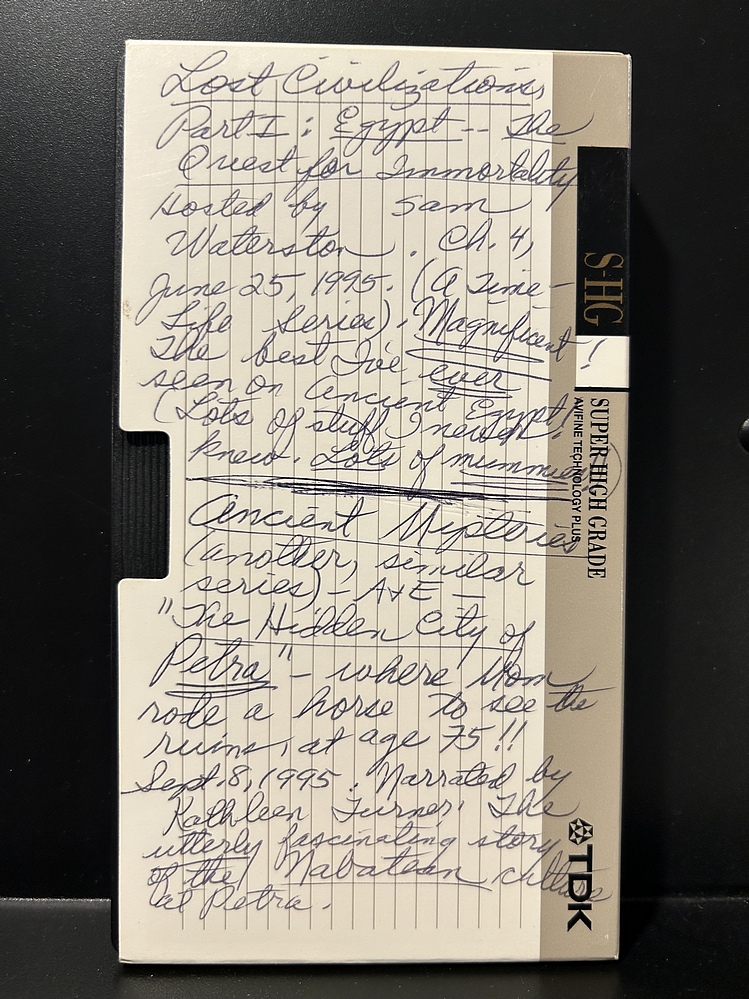 Lost Civilizations,
Part I : Egypt -- The
Quest for Immortality
Hosted by Sam
Waterston. Ch. 4,
June 25, 1995. (A Time-
Life Series). Magnificent!
The best I've ever
seen on Ancient Egypt!
(Lots of stuff I never
knew. Lots of mummies
Ancient Mysteries
(another, similar
series) - A&E -
"The Hidden City of
Petra" - where Mom
rode a horse to see the
ruins, at age 75!!
Sept. 8, 1995. Narrated by
Kathleen Turner. The
utterly fascinating story
of the Nabatean culture
at Petra.
S-HG
SUPER HIGH GRADE
AVIFINE TECHNOLOGY PLUS
TDK